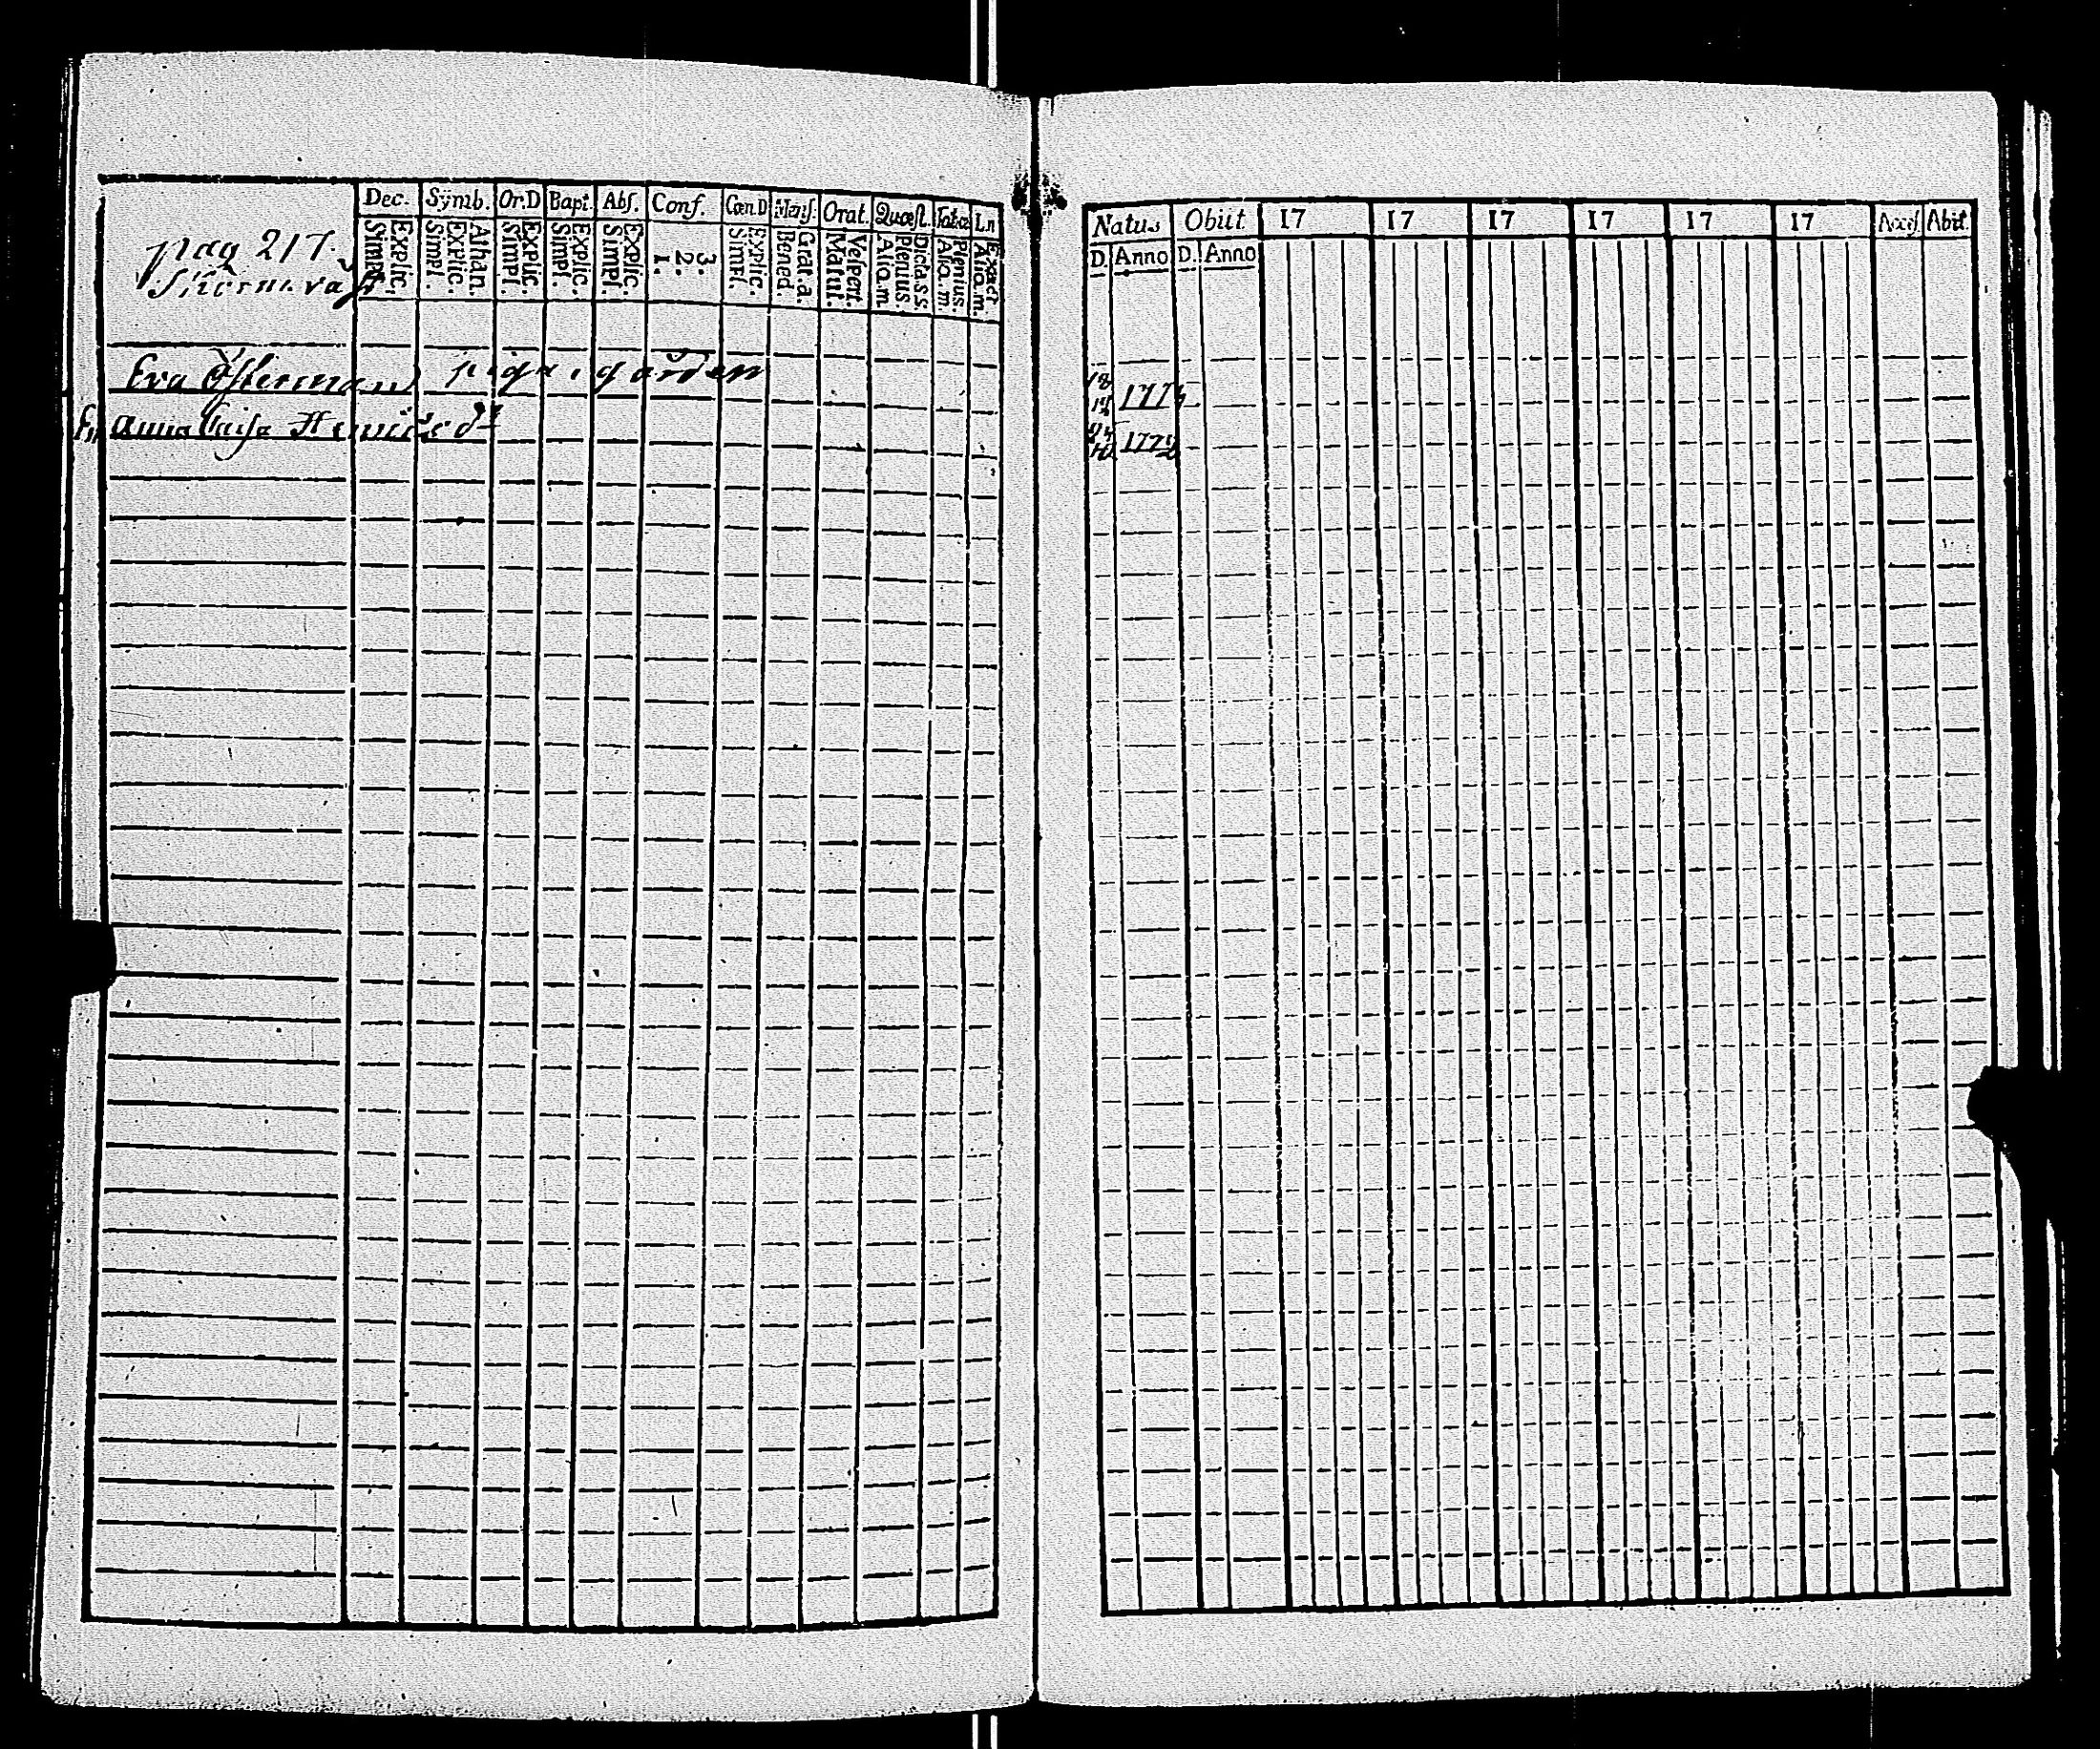 pag 217.
Dec. Symb. Or.D Bapt. Abs. Conf. Cœn.D Mens. Orat. Quæst. Tabæ Ln
Simpl. Explic. Simpl. Explic. Athan. Simpl. Explic. Simpl. Explic. Simpl. Explic. 1. 2. 3. Simpl. Explic. Bened. Grat.a. Matut. Vespert. Aliq.m. Plenius. Dicta.s.s. Aliq.m Plenius. Aliq.m. Exact
Eva Österman piga i gården
Anna Caisa
Natus Obiit 17 17 17 17 17 17 Access. Abit.
D. Anno D. Anno
18
1775
24
10 1772